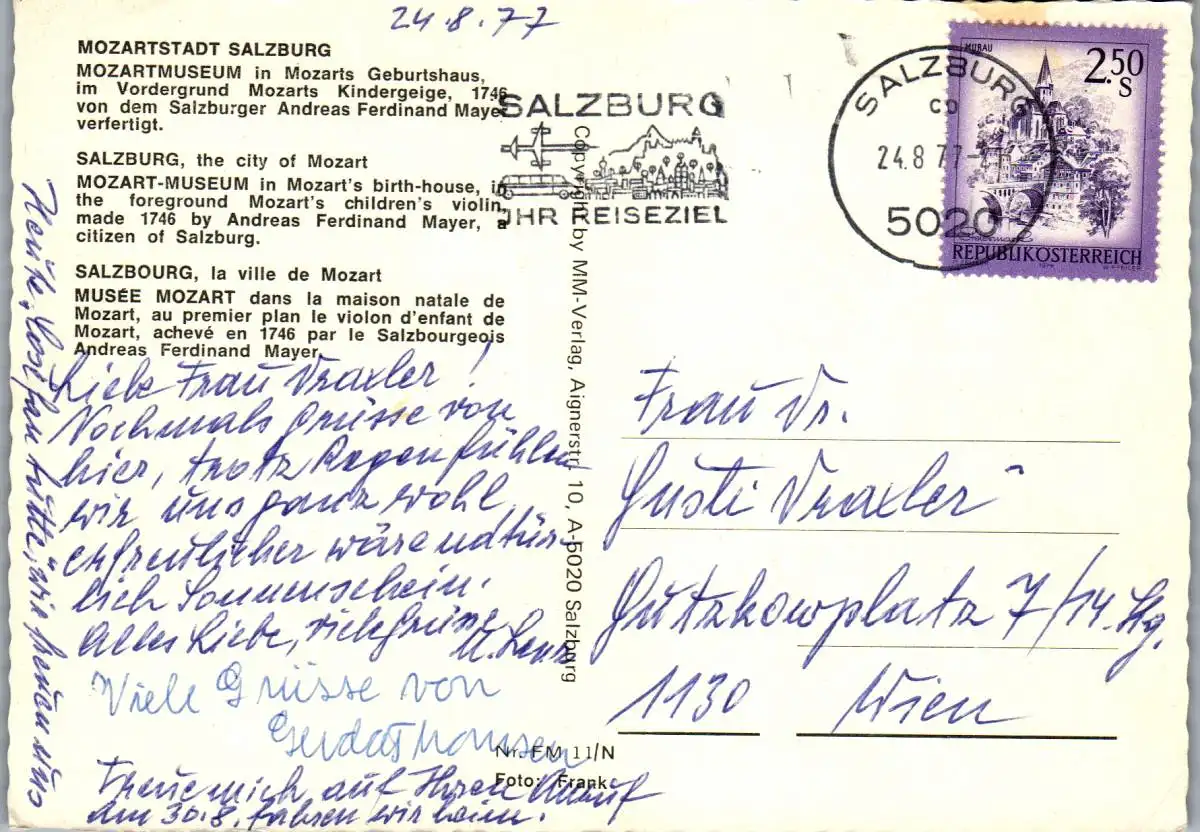 24.8.77
MOZARTSTADT SALZBURG
MOZARTMUSEUM in Mozarts Geburtshaus,
im Vordergrund Mozarts Kindergeige, 1746
von dem Salzburger Andreas Ferdinand Mayer
verfertigt.
SALZBURG, the city of Mozart
MOZART-MUSEUM in Mozart's birth-house, in
the foreground Mozart's children's violin,
made 1746 by Andreas Ferdinand Mayer, a
citizen of Salzburg.
SALZBOURG, la ville de Mozart
MUSÉE MOZART dans la maison natale de
Mozart, au premier plan le violon d'enfant de
Mozart, achevé en 1746 par le Salzbourgeois
Andreas Ferdinand Mayer.
Liebe Frau Draxler!
Nochmals Grüsse von
hier, trotz Regen fühlen
wir uns ganz wohl,
erfreulicher wäre natür-
lich Sonnenschein.
Alles Liebe, viele Grüsse
Viele Grüsse von
Gerda Thomsen
Freue mich auf Ihren Anruf
am 30.8. fahren wir heim.
Heute, wir freuen uns
SALZBURG
IHR REISEZIEL
Copyright by MM-Verlag, Aignerstr. 10, A-5020 Salzburg
Nr. FM 11/N
Foto: Frank
SALZBURG
24.8.77
5020
MURAU
2.50
S
REPUBLIK ÖSTERREICH
Frau Dr.
Gusti Draxler
Gutzkowplatz 7/14. Stg.
1130 Wien